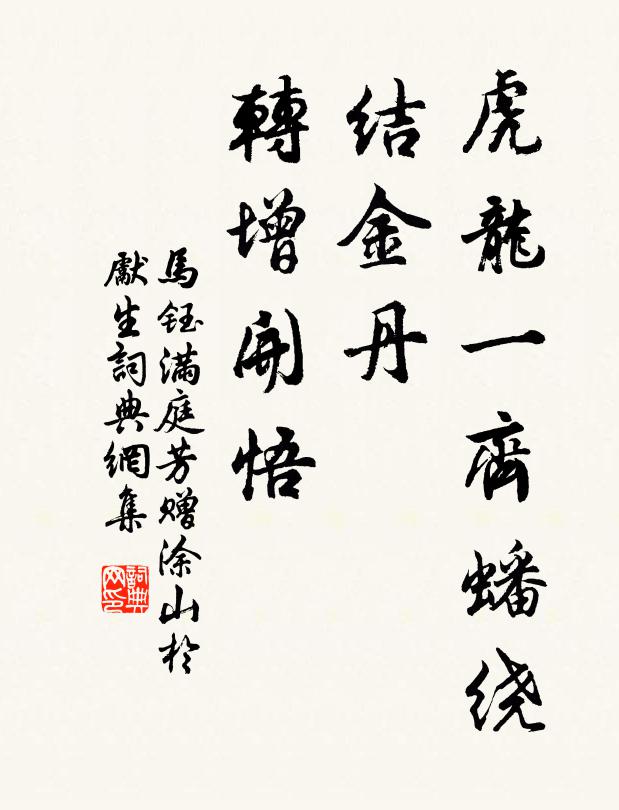 虎龍一齊蟠绕
结金丹
轉增開悟
馬鈺滿庭芳赠涂山於
獻生詞典網集
詞典网印